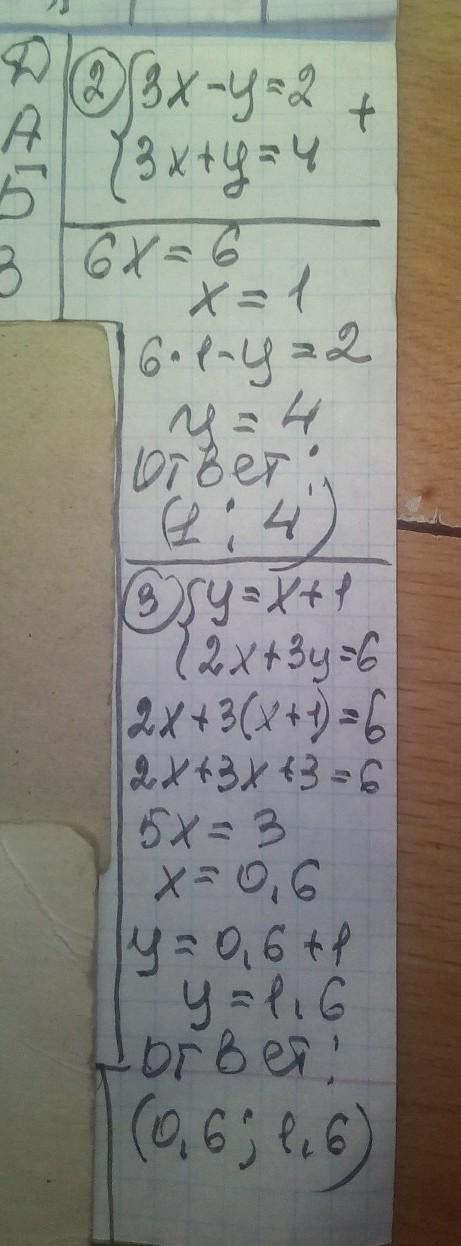 Д
А
Б
З
② {3x-y=2
{3x+y=4 +
6x=6
x=1
6·1-y=2
y=4
Ответ:
(1; 4)
③ {y=x+1
{2x+3y=6
2x+3(x+1)=6
2x+3x+3=6
5x=3
x=0,6
y=0,6+1
y=1,6
Ответ:
(0,6; 1,6)